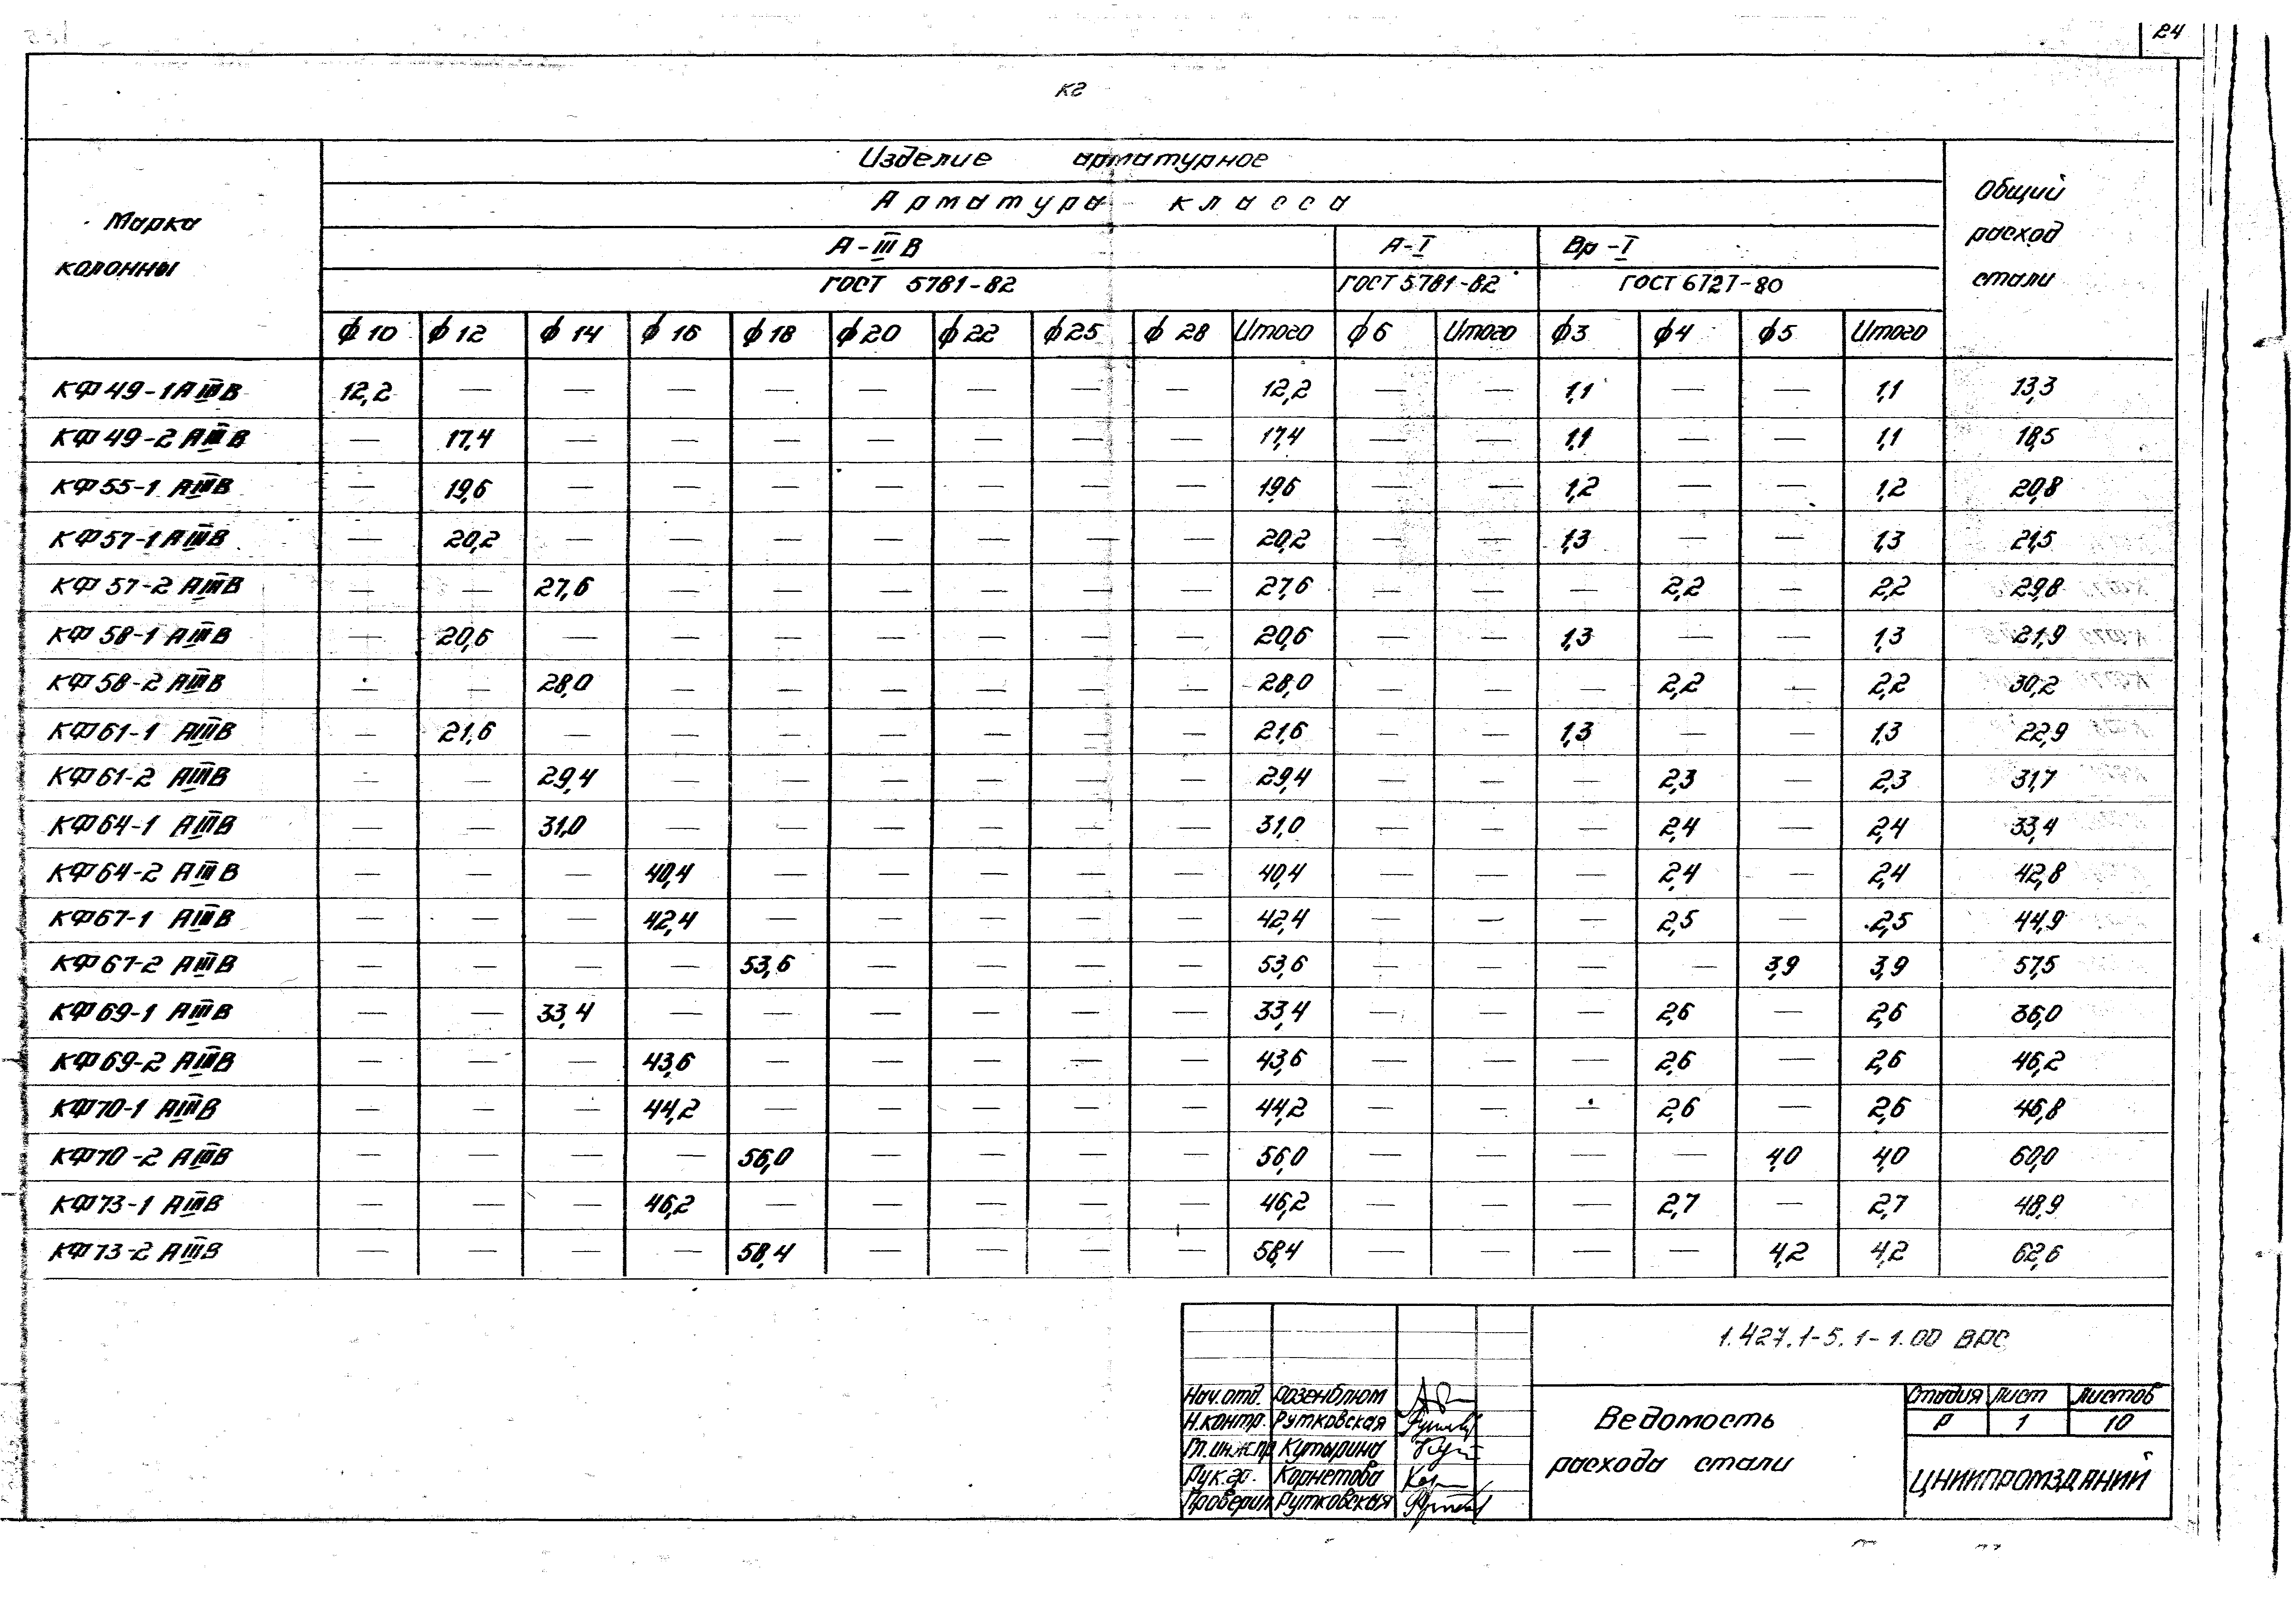 24
кг
Марка колонны
Изделие арматурное
Арматура класса
А-IIIВ А-I Вр-I
ГОСТ 5781-82 ГОСТ 5781-82 ГОСТ 6727-80
Общий расход стали
ф10 ф12 ф14 ф16 ф18 ф20 ф22 ф25 ф28 Итого ф6 Итого ф3 ф4 ф5 Итого
КФ49-1АIIIВ 12,2 — — — — — — — — 12,2 — — 1,1 — — 1,1 13,3
КФ49-2АIIIВ — 17,4 — — — — — — — 17,4 — — 1,1 — — 1,1 18,5
КФ55-1 АIIIВ — 19,6 — — — — — — — 19,6 — — 1,2 — — 1,2 20,8
КФ57-1АIIIВ — 20,2 — — — — — — — 20,2 — — 1,3 — — 1,3 21,5
КФ57-2 АIIIВ — — 27,6 — — — — — — 27,6 — — — 2,2 — 2,2 29,8
КФ58-1 АIIIВ — 20,6 — — — — — — — 20,6 — — 1,3 — — 1,3 21,9
КФ58-2 АIIIВ — — 28,0 — — — — — — 28,0 — — — 2,2 — 2,2 30,2
КФ61-1 АIIIВ — 21,6 — — — — — — — 21,6 — — 1,3 — — 1,3 22,9
КФ61-2 АIIIВ — — 29,4 — — — — — — 29,4 — — — 2,3 — 2,3 31,7
КФ64-1 АIIIВ — — 31,0 — — — — — — 31,0 — — — 2,4 — 2,4 33,4
КФ64-2 АIIIВ — — — 40,4 — — — — — 40,4 — — — 2,4 — 2,4 42,8
КФ67-1 АIIIВ — — — 42,4 — — — — — 42,4 — — — 2,5 — 2,5 44,9
КФ67-2 АIIIВ — — — — 53,6 — — — — 53,6 — — — — 3,9 3,9 57,5
КФ69-1 АIIIВ — — 33,4 — — — — — — 33,4 — — — 2,6 — 2,6 36,0
КФ69-2 АIIIВ — — — 43,6 — — — — — 43,6 — — — 2,6 — 2,6 46,2
КФ70-1 АIIIВ — — — 44,2 — — — — — 44,2 — — — 2,6 — 2,6 46,8
КФ70-2 АIIIВ — — — — 56,0 — — — — 56,0 — — — — 4,0 4,0 60,0
КФ73-1 АIIIВ — — — 46,2 — — — — — 46,2 — — — 2,7 — 2,7 48,9
КФ73-2 АIIIВ — — — — 58,4 — — — — 58,4 — — — — 4,2 4,2 62,6
1.427.1-5.1-1.00 ВРС
Нач.отд. Розенблюм
Н.контр. Рутковская
Гл.инж.пр Кутырина
Рук.гр. Корнетова
Проверил Рутковская
Ведомость
расхода стали
Стадия Лист Листов
Р 1 10
ЦНИИПРОМЗДАНИЙ